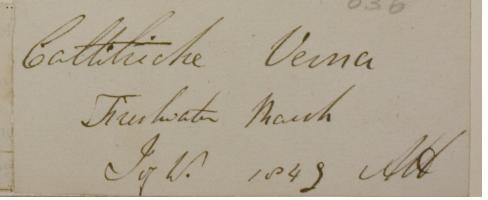 036
Callitriche Verna
Freshwater Marsh
I of W. 1849 AH